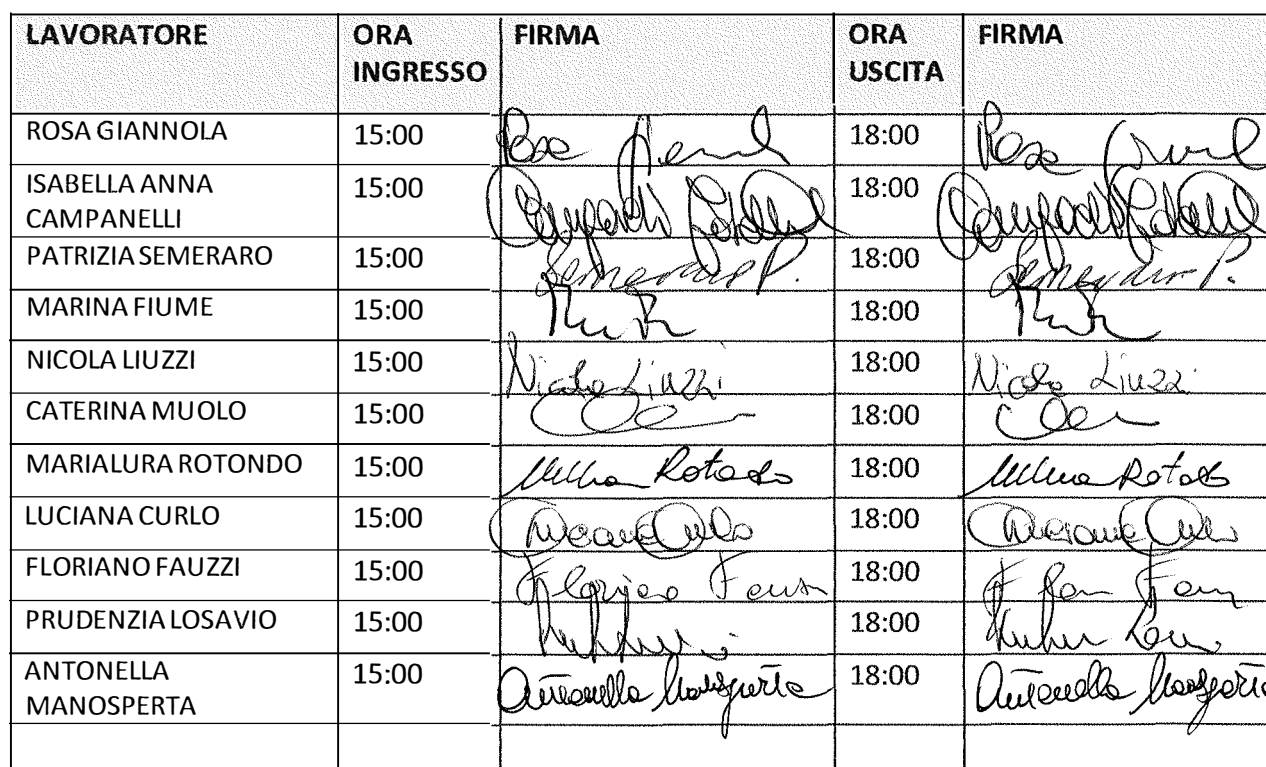 LAVORATORE ORA INGRESSO FIRMA ORA USCITA FIRMA
ROSA GIANNOLA 15:00 18:00
ISABELLA ANNA CAMPANELLI 15:00 18:00
PATRIZIA SEMERARO 15:00 Semeraro P. 18:00 Semeraro P.
MARINA FIUME 15:00 18:00
NICOLA LIUZZI 15:00 Nicola Liuzzi 18:00 Nicola Liuzzi
CATERINA MUOLO 15:00 18:00
MARIALURA ROTONDO 15:00 18:00
LUCIANA CURLO 15:00 Luciana Curlo 18:00 Luciana Curlo
FLORIANO FAUZZI 15:00 18:00
PRUDENZIA LOSAVIO 15:00 18:00
ANTONELLA MANOSPERTA 15:00 Antonella Manosperta 18:00 Antonella Manosperta